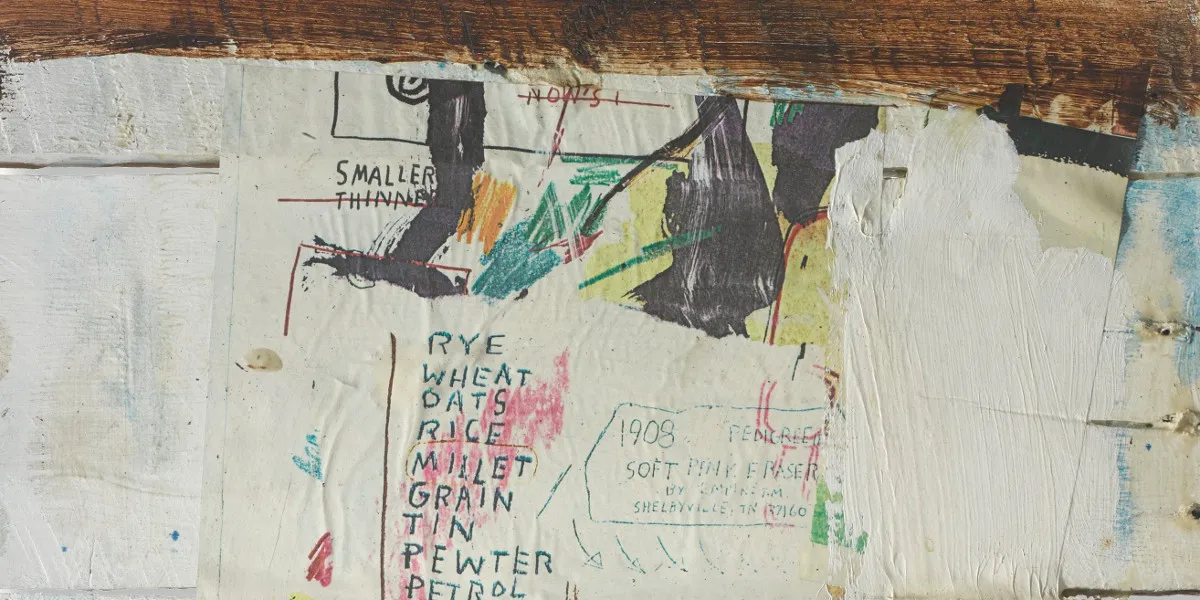 NOW'S
SMALLER
THINNER
RYE
WHEAT
OATS
RICE
MILLET
GRAIN
TIN
PEWTER
PETROL
1908 PEDIGREED
SOFT PINK ERASER
BY EMPIRE T.M.
SHELBYVILLE, TN 37160